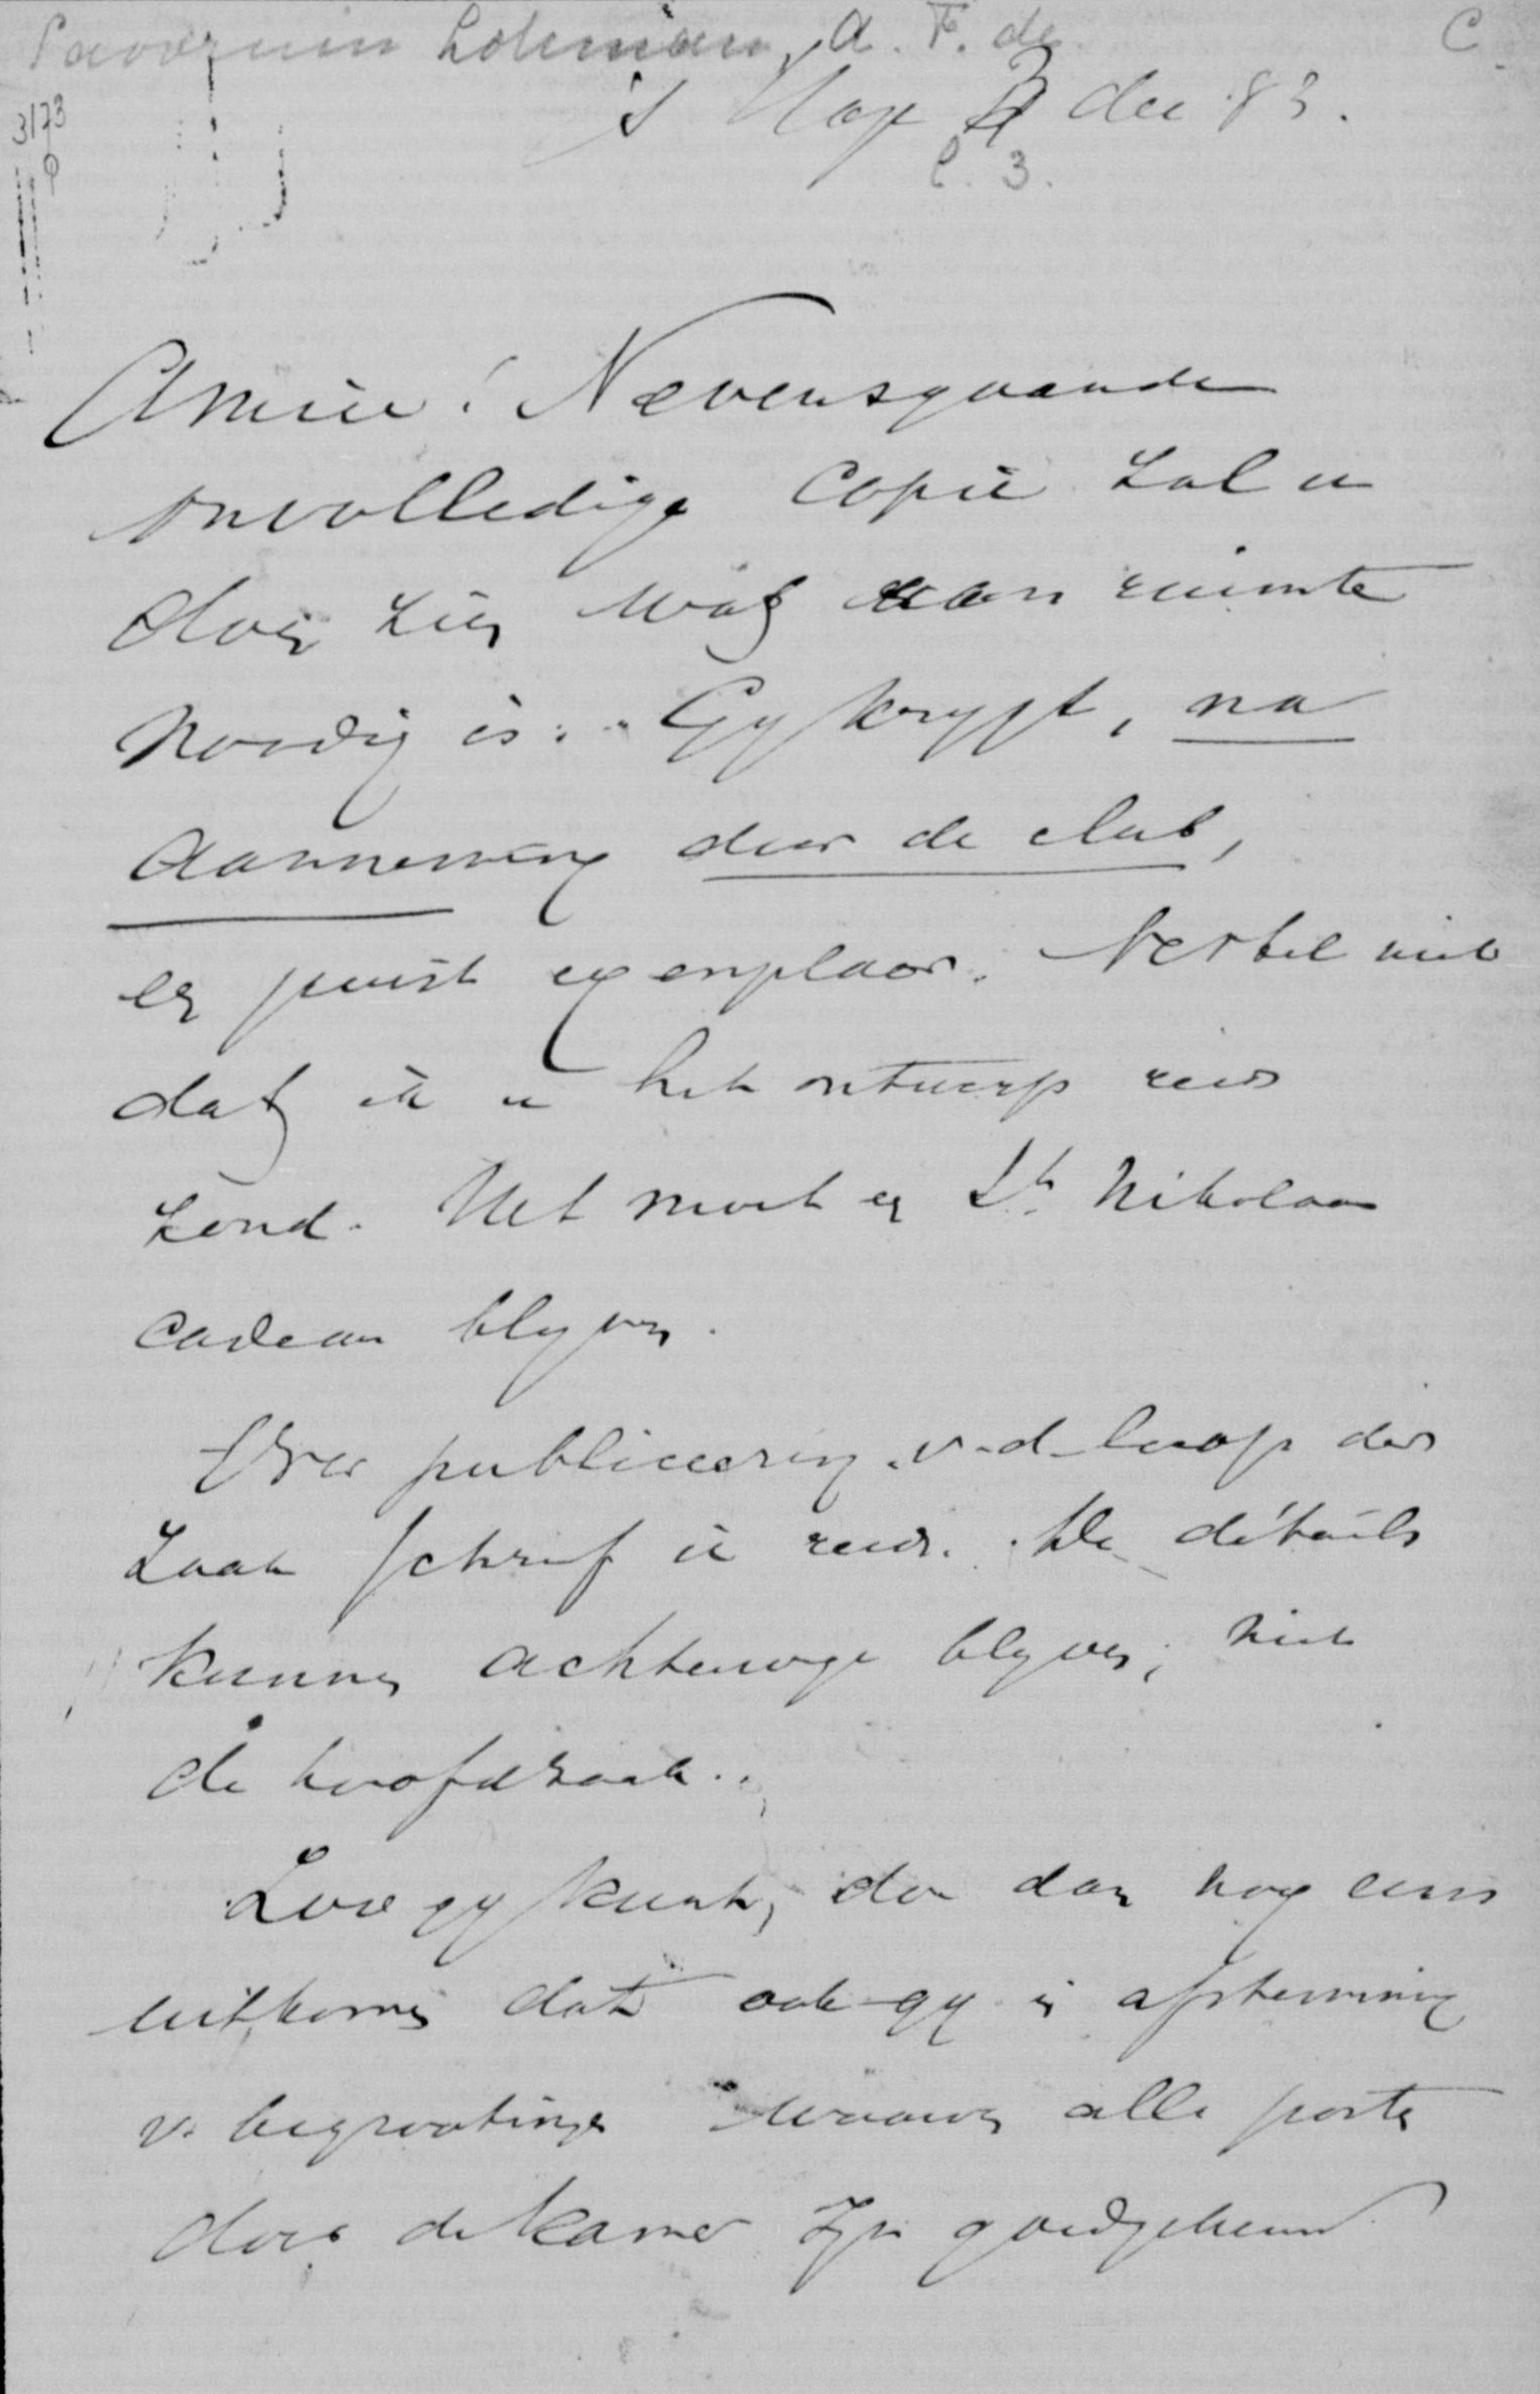 Savornin Lohman, A. F. de C
's Hage 3 dec 83.
3173
C. 3.
Amice! Nevensgaande
onvolledige copie zal u
doen zien wat aan ruimte
noodig is. Gy krygt, na
aanneming door de club,
een juist exemplaar. Vertel niet
dat ik u het ontwerp reeds
zond. Het moet een St. Nikolaas
cadeau blyven.
Over publiceering v. d. loop der
zaak schreef ik reeds. De détails
kunnen achterwege blyven; niet
de hoofdzaak.
Zoo gy kunt, doe dan nog eens
uitkomen dat ook gy in afstemming
v. begrootingen waarvan alle posten
door de kamer zyn goedgekeurd